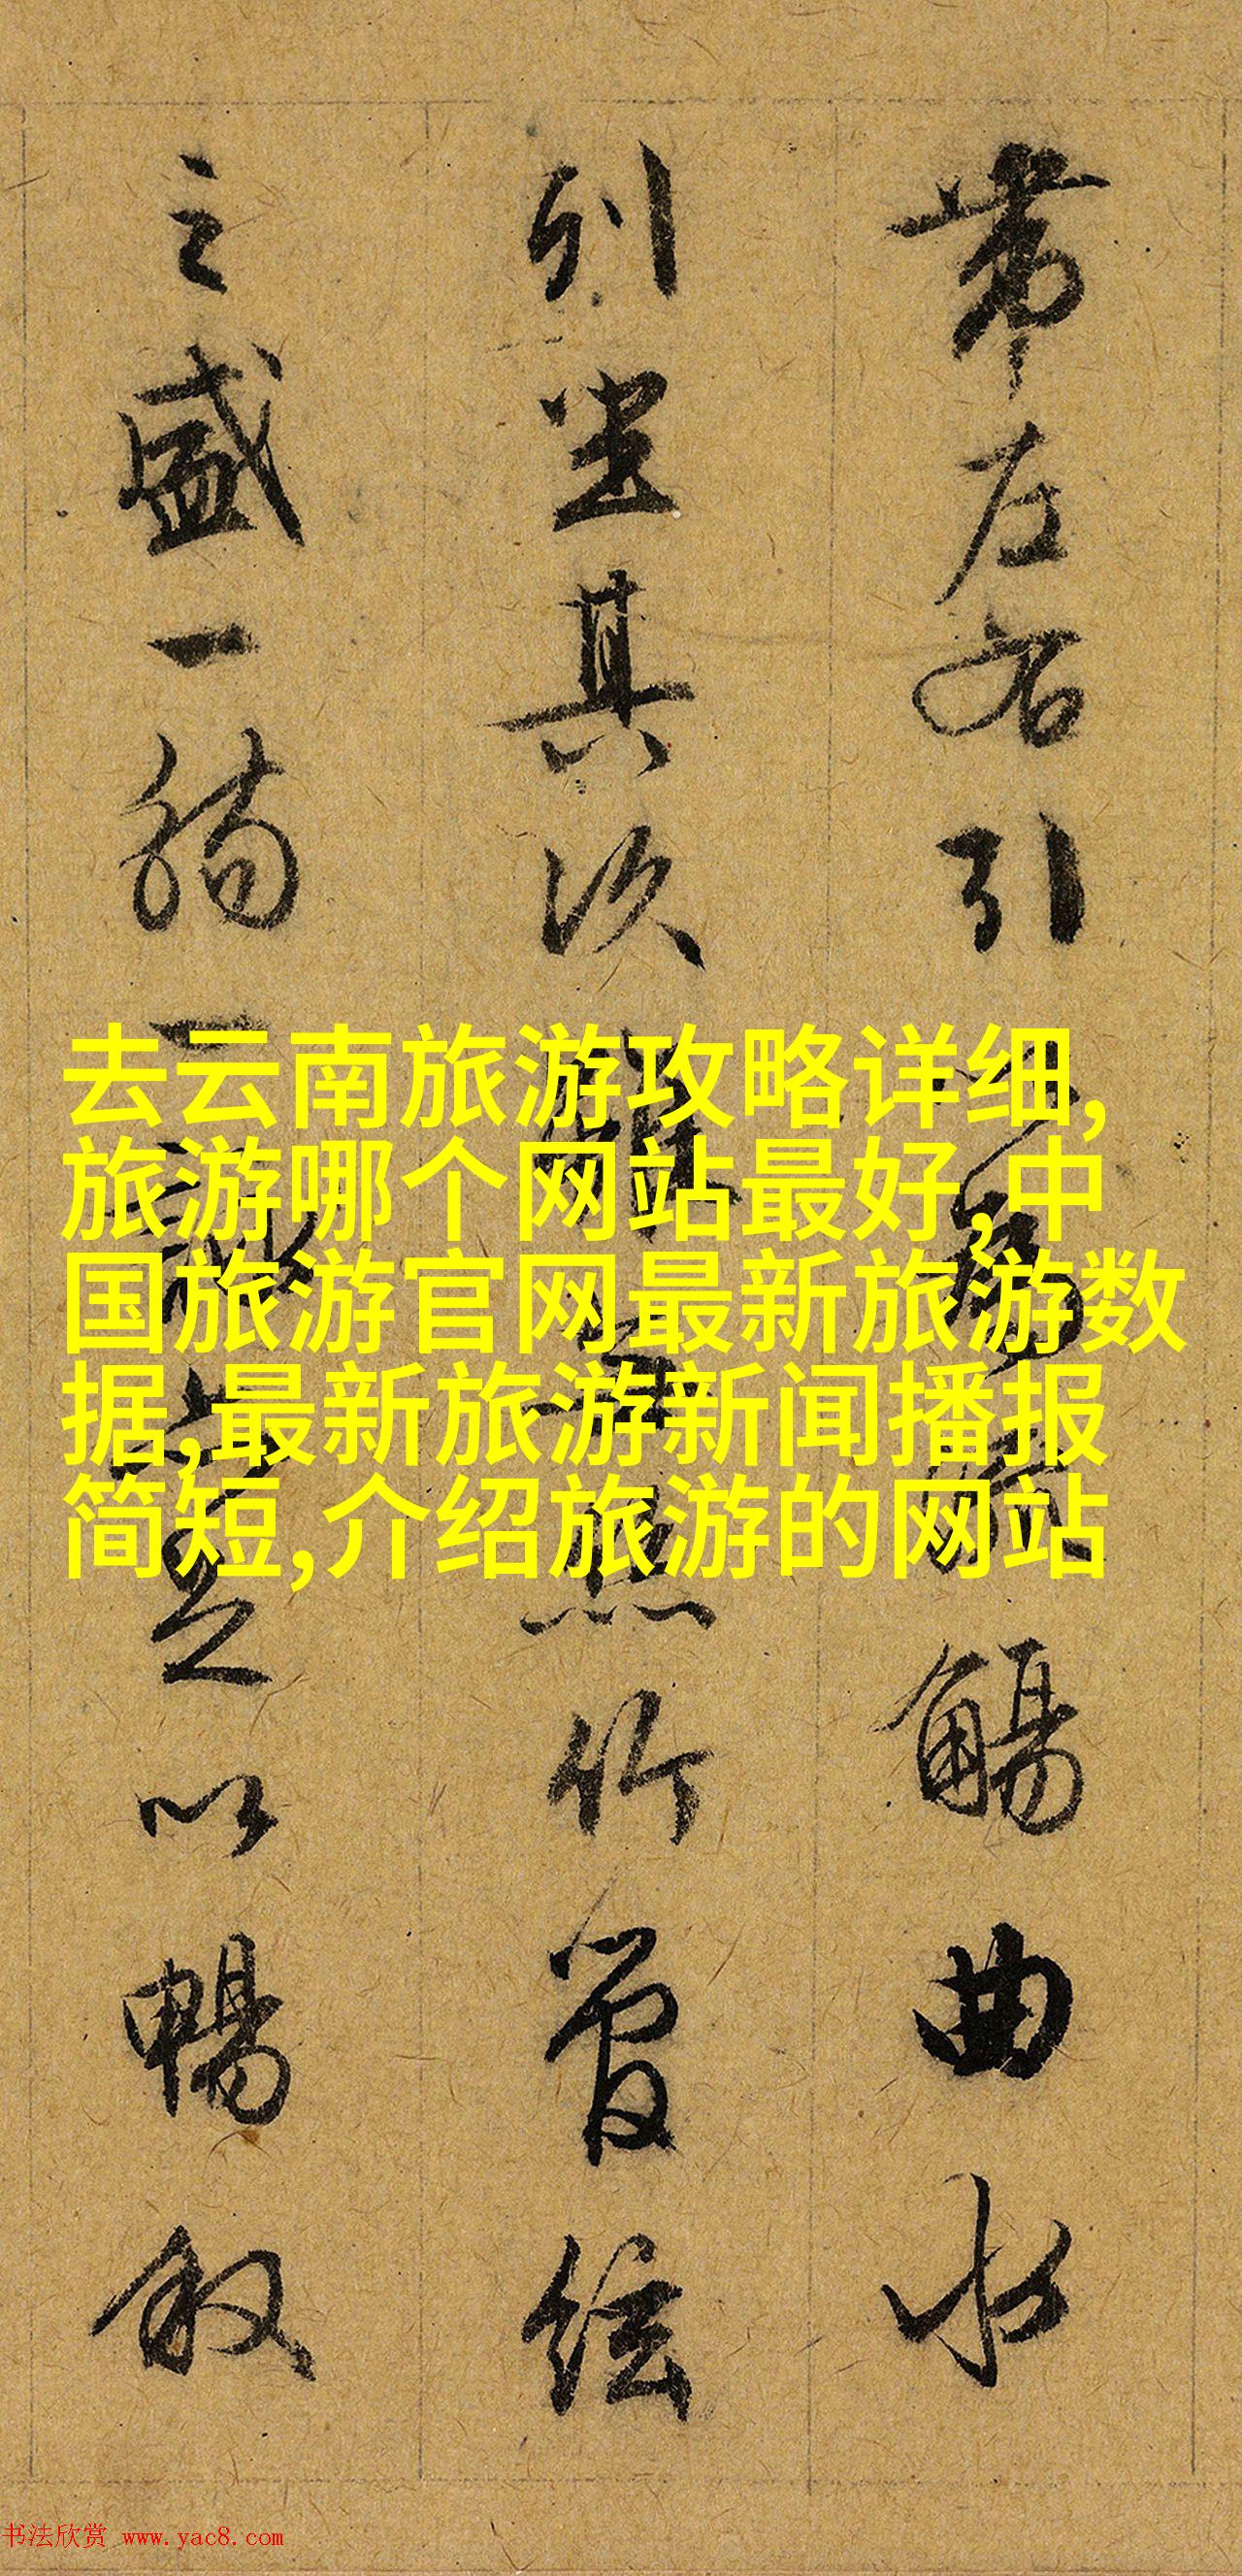 帶左右引以為流觴曲水
列坐其次雖無絲竹管絃
之盛一觴一詠亦足以暢敘
去云南旅游攻略详细,
旅游哪个网站最好,中
国旅游官网最新旅游数
据,最新旅游新闻播报
简短,介绍旅游的网站
书法欣赏 www.yac8.com